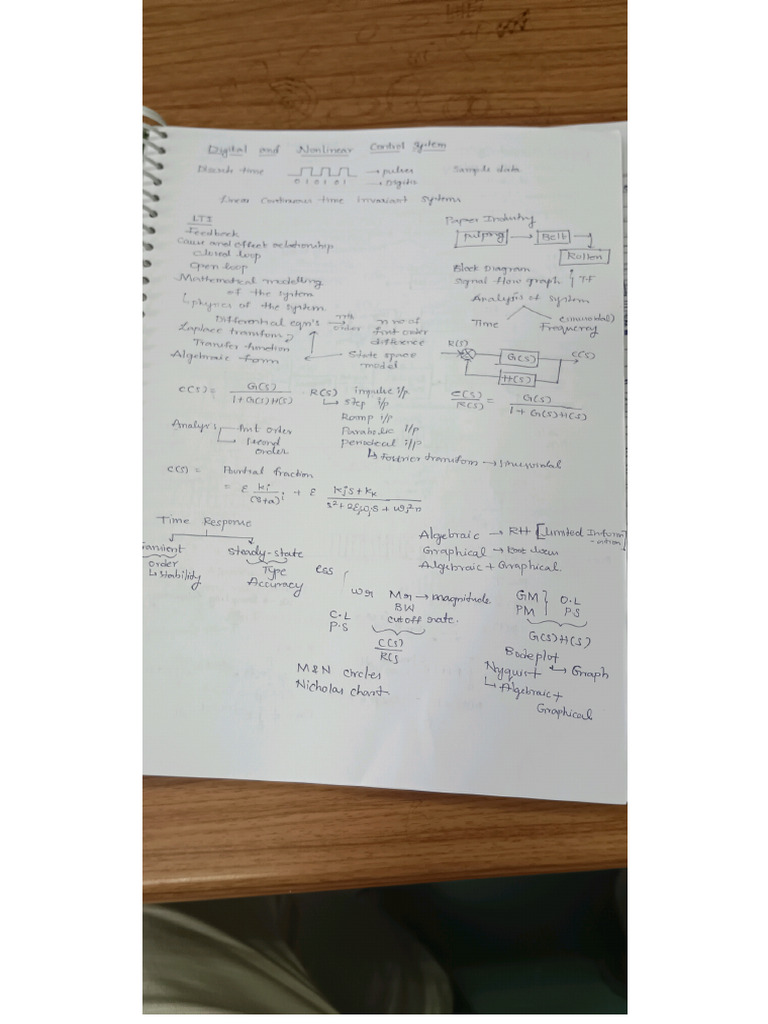 Digital and Nonlinear Control System
Discrete time → pulses Sample data
0 1 0 1 0 1 → Digits
Linear Continuous time Invariant Systems
LTI
Feedback
Cause and effect relationship
closed loop
open loop
Mathematical modelling
of the system
↳ physics of the system
Differential eqn's → nth order n no of first order difference
Laplace transform
Transfer function
Algebraic form ← State space model
Paper Industry
pulping → Belt → Rollen
Block Diagram
Signal flow graph T·F
Analysis of system
Time (sinusoidal) Frequency
R(s) G(s) C(s)
H(s)
C(s) = G(s) / 1+G(s)H(s)
R(s) impulse i/p
↳ step i/p
Ramp i/p
Parabolic i/p
periodical i/p
↳ Fourier transfom → Sinusoidal
C(s)/R(s) = G(s) / 1+G(s)H(s)
Analysis → first order
→ second order
C(s) = Partial fraction
= Ɛ ki/(s+a)i + Ɛ kjs+kk / s²+2ξωjs+ωj²n
Time Response
Transient Steady-state
order Type ess
↳ stability Accuracy
Algebraic → RH [Limited Information]
Graphical → Root locus
Algebraic + Graphical
ωr Mr → magnitude
BW
C·L cutoff rate.
P·S
C(s)/R(s
M&N circles
Nicholas chart
GM } O·L
PM P·S
G(s)H(s)
Bodeplot
Nyquist ↔ Graph
↳ Algebraic +
Graphical